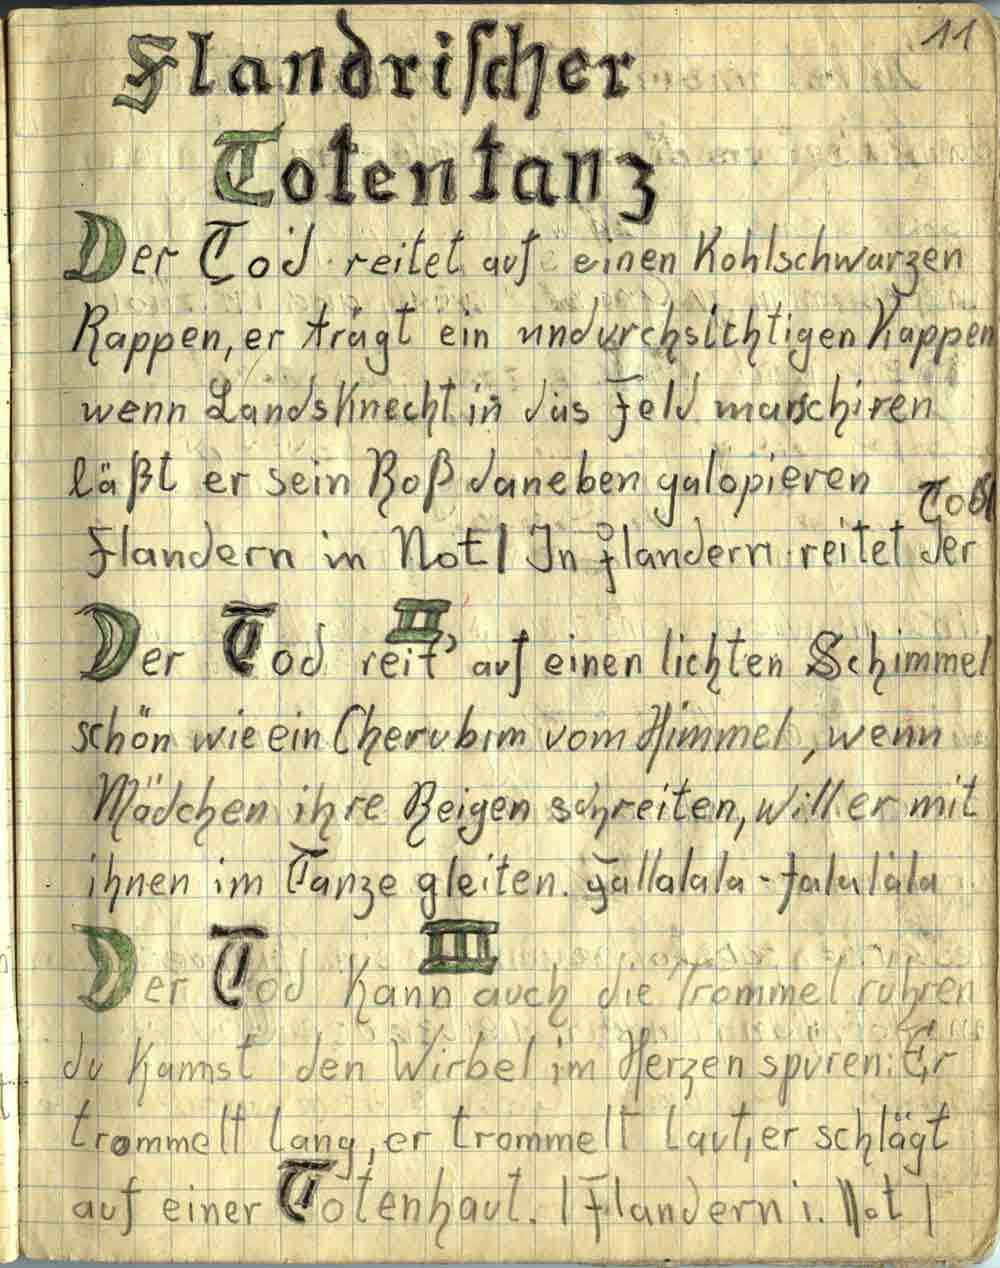 11
Flandrischer
Totentanz
Der Tod reitet auf einen Kohlschwarzen
Rappen, er trägt ein undurchsichtigen Kappen
wenn Landsknecht in das Feld marschiren
läßt er sein Roß daneben galopieren
Flandern in Not! In Flandern reitet der Tod!
II
Der Tod reit' auf einen lichten Schimmel
schön wie ein Cherubim vom Himmel, wenn
Mädchen ihre Reigen schreiten, will er mit
ihnen im Tanze gleiten. Fallalala - falalala
III
Der Tod Kann auch die Trommel rühren
du Kannst den Wirbel im Herzen spüren: Er
trommelt lang, er trommelt laut, er schlägt
auf einer Totenhaut. | Flandern i. Not |